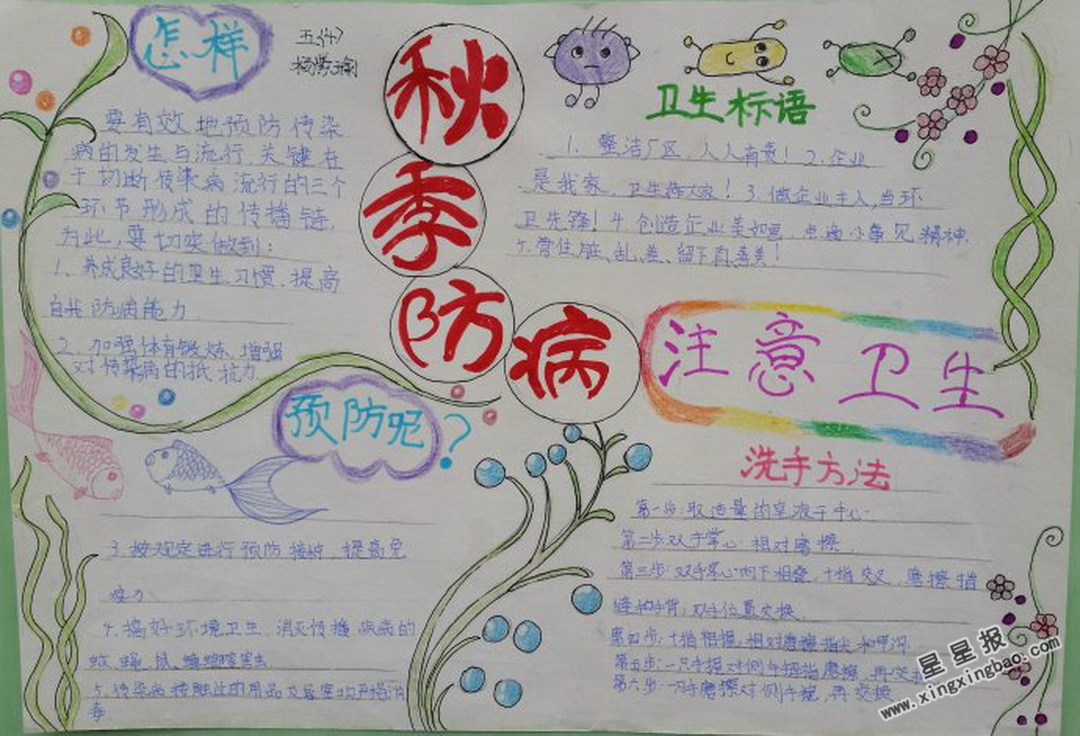 怎样
秋季防病
要有效地预防传染
病的发生与流行,关键在
于切断传染病流行的三个
环节形成的传播链,
为此,要切实做到:
1、养成良好的卫生习惯,提高
自我防病能力
2、加强体育锻炼,增强
对传染病的抵抗力.
预防呢?
3、按规定进行预防接种,提高免
疫力
4、搞好环境卫生,消灭传播疾病的
蚊、蝇、鼠、蟑螂等害虫
5、传染病接触过的用品及
毒
卫生标语
1、整洁厂区,人人有责!2、企业
是我家,卫生靠大家!3、做企业主人,当环
卫先锋!4、创造企业美如画,点滴小事见精神.
5、管住脏、乱、差、留下真善美!
注意卫生
洗手方法
第一步:取适量的皂液于中心.
第二步:双手掌心相对磨擦.
第三步:双手掌心向下相叠,十指交叉,磨擦指
缝和手背;双手位置交换.
第四步:十指相握,相对磨擦指尖和甲沟
第五步:一只手握对侧手拇指磨擦,再交
第六步:一只手磨擦对侧手腕,再交换
星星报
www.xingxingbao.com